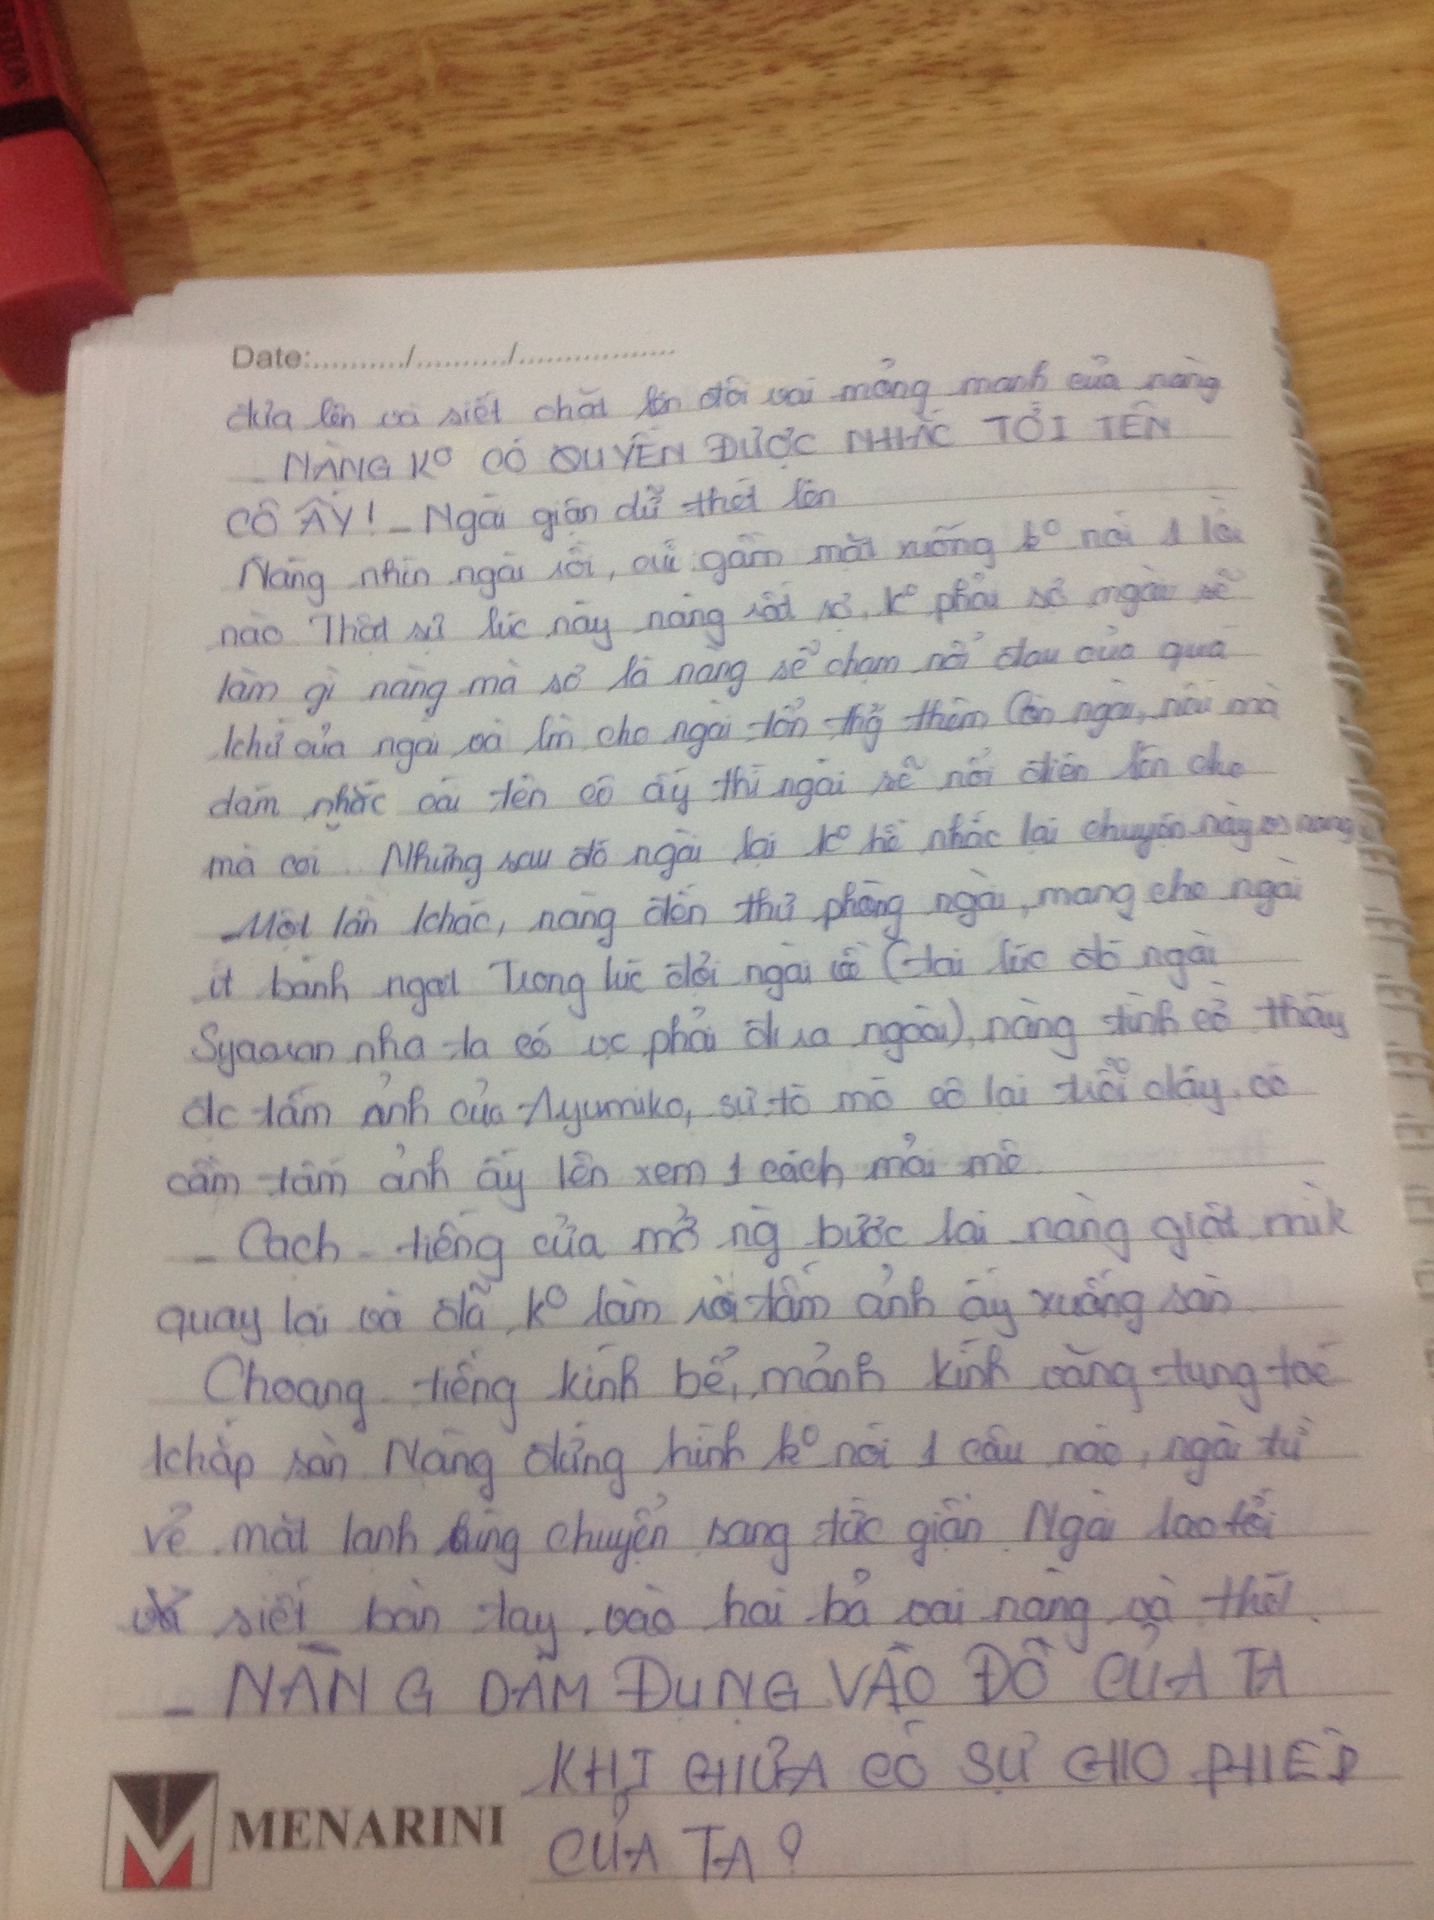 Date:........../........../.................
đưa lên và siết chặt lên đôi vai mỏng manh của nàng
- NÀNG Kº CÓ QUYỀN ĐƯỢC NHẮC TỚI TÊN
CÔ ẤY! - Ngài giận dữ thét lên
Nàng nhìn ngài rồi, cúi gầm mặt xuống kº nói 1 lời
nào Thật sự lúc này nàng rất sợ, kº phải sợ ngài sẽ
làm gì nàng mà sợ là nàng sẽ chạm nỗi đau của quá
khứ của ngài và làm cho ngài tổn thg thêm Còn ngài, nói mà
dám nhắc cái tên cô ấy thì ngài sẽ nổi điên lên cho
mà coi. Nhưng sau đó ngài lại kº hề nhắc lại chuyện này nàng
- Một lần khác, nàng đến thư phòng ngài, mang cho ngài
ít bánh ngọt Trong lúc đợi ngài về (tại lúc đó ngài
Syaoran nha ta có vc phải đi ra ngoài), nàng tình cờ thấy
đc tấm ảnh của Ayumiko, sự tò mò cô lại trỗi dậy, cô
cầm tấm ảnh ấy lên xem 1 cách mải mê
- Cạch - tiếng cửa mở ng bước lại nàng giật mik
quay lại và đã kº làm rơi tấm ảnh ấy xuống sàn
Choang tiếng kính bể, mảnh kính văng tung toé
khắp sàn Nàng đứng hình kº nói 1 câu nào, ngài từ
vẻ mặt lạnh lùng chuyển sang tức giận. Ngài lao tới
và siết bàn tay vào hai bả vai nàng và thét.
- NÀNG DÁM ĐỤNG VÀO ĐỒ CỦA TA
KHI CHƯA CÓ SỰ CHO PHÉP
CỦA TA?
MENARINI